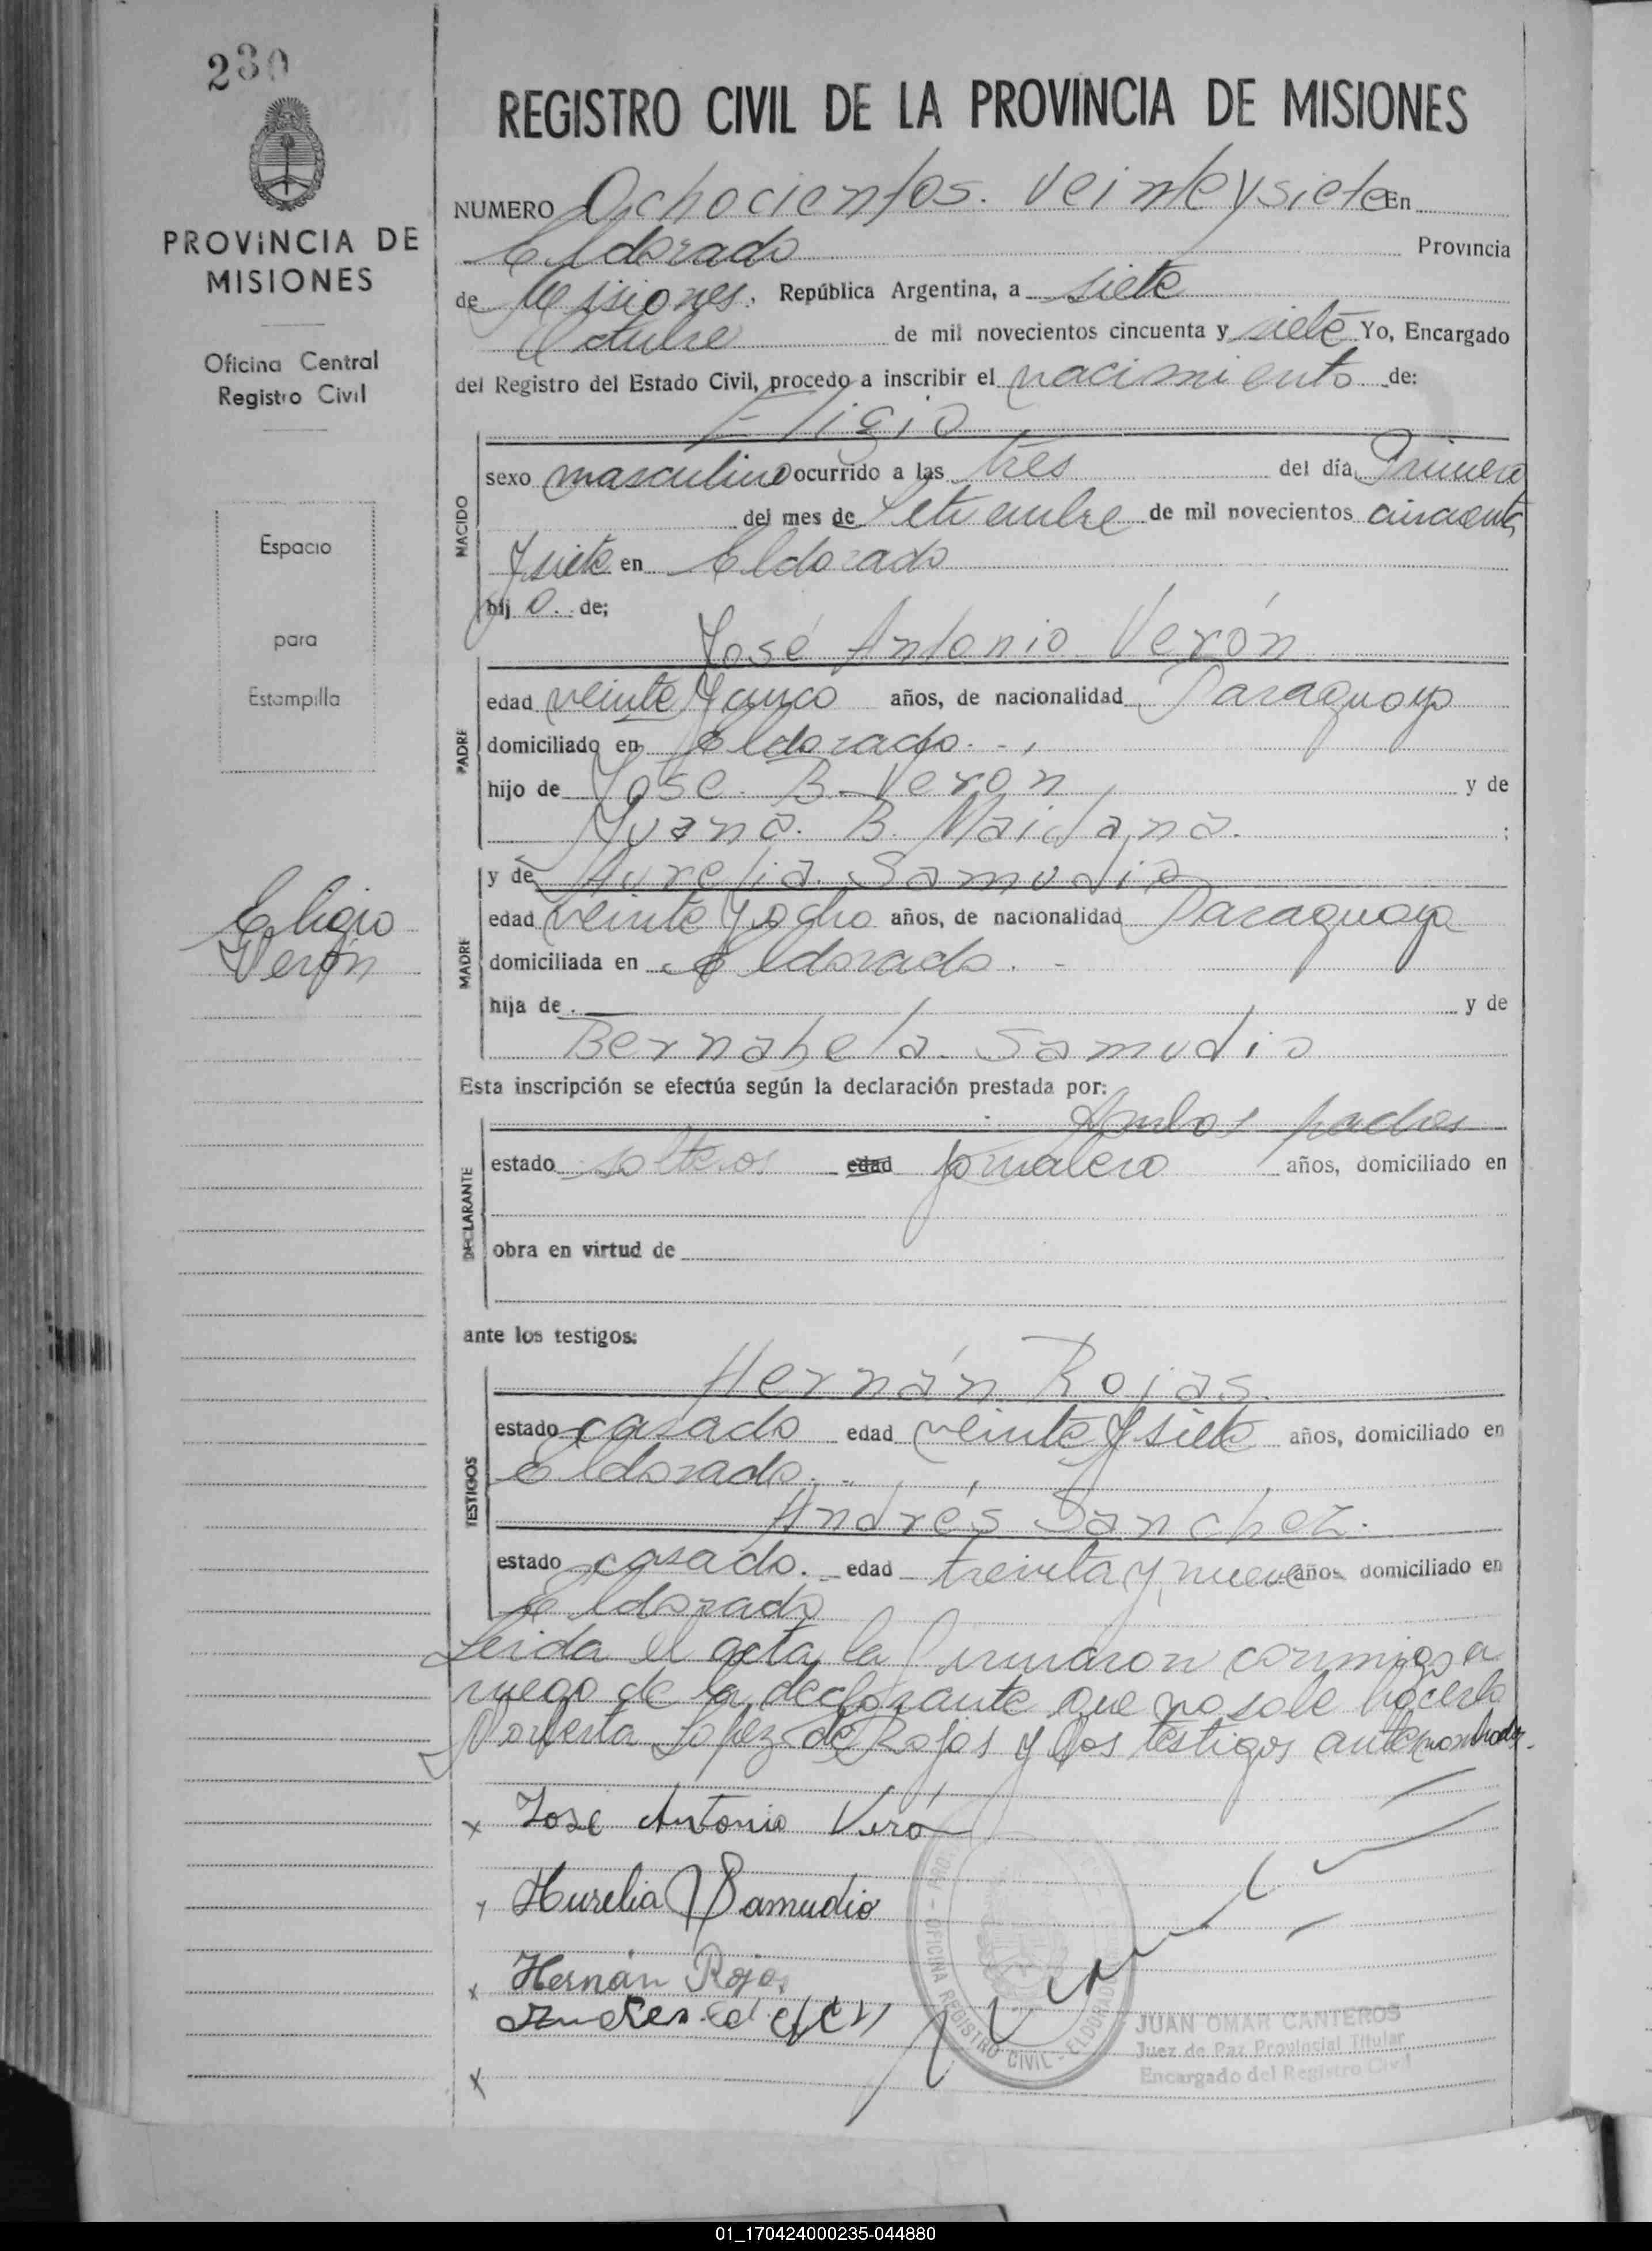 230
REGISTRO CIVIL DE LA PROVINCIA DE MISIONES
PROVINCIA DE
MISIONES
Oficina Central
Registro Civil
Espacio
para
Estampilla
Eligio
Verón
NUMERO Ochocientos. veinteysiete En
Eldorado Provincia
de Misiones. República Argentina, a siete
Octubre de mil novecientos cincuenta y siete Yo, Encargado
del Registro del Estado Civil, procedo a inscribir el nacimiento de:
Eligio
NACIDO
sexo masculino ocurrido a las tres del día Primero
del mes de Setiembre de mil novecientos cincuenta
y siete en Eldorado
hij o. de;
José Antonio Verón
PADRE
edad veinte y cinco años, de nacionalidad Paraguayo
domiciliado en Eldorado. - .
hijo de José. B. Verón y de
Juana. B. Maidana. ;
MADRE
y de Aurelia. Samudio
edad veinte y ocho años, de nacionalidad Paraguaya
domiciliada en Eldorado. -
hija de y de
Bernabela. Samudio
Esta inscripción se efectúa según la declaración prestada por:
Ambos padres
DECLARANTE
estado solteros edad jornalero años, domiciliado en
obra en virtud de
ante los testigos:
Hernán Rojas.
TESTIGOS
estado casado edad veinte y siete años, domiciliado en
Eldorado. -
Andrés Sanchez.
estado casado. edad treinta y nueve años domiciliado en
Eldorado
Leida el acta, la firmaron conmigo a
ruego de la declarante que no sabe hacerlo
Norberta Lopez de Rojas y los testigos antenombrados.
x José Antonio Veró
Hurelia Samudio
x Hernán Rojas
x
OFICINA REGISTRO CIVIL - ELDORADO
JUAN OMAR CANTEROS
Juez de Paz Provincial Titular
Encargado del Registro Civil
01_170424000235-044880